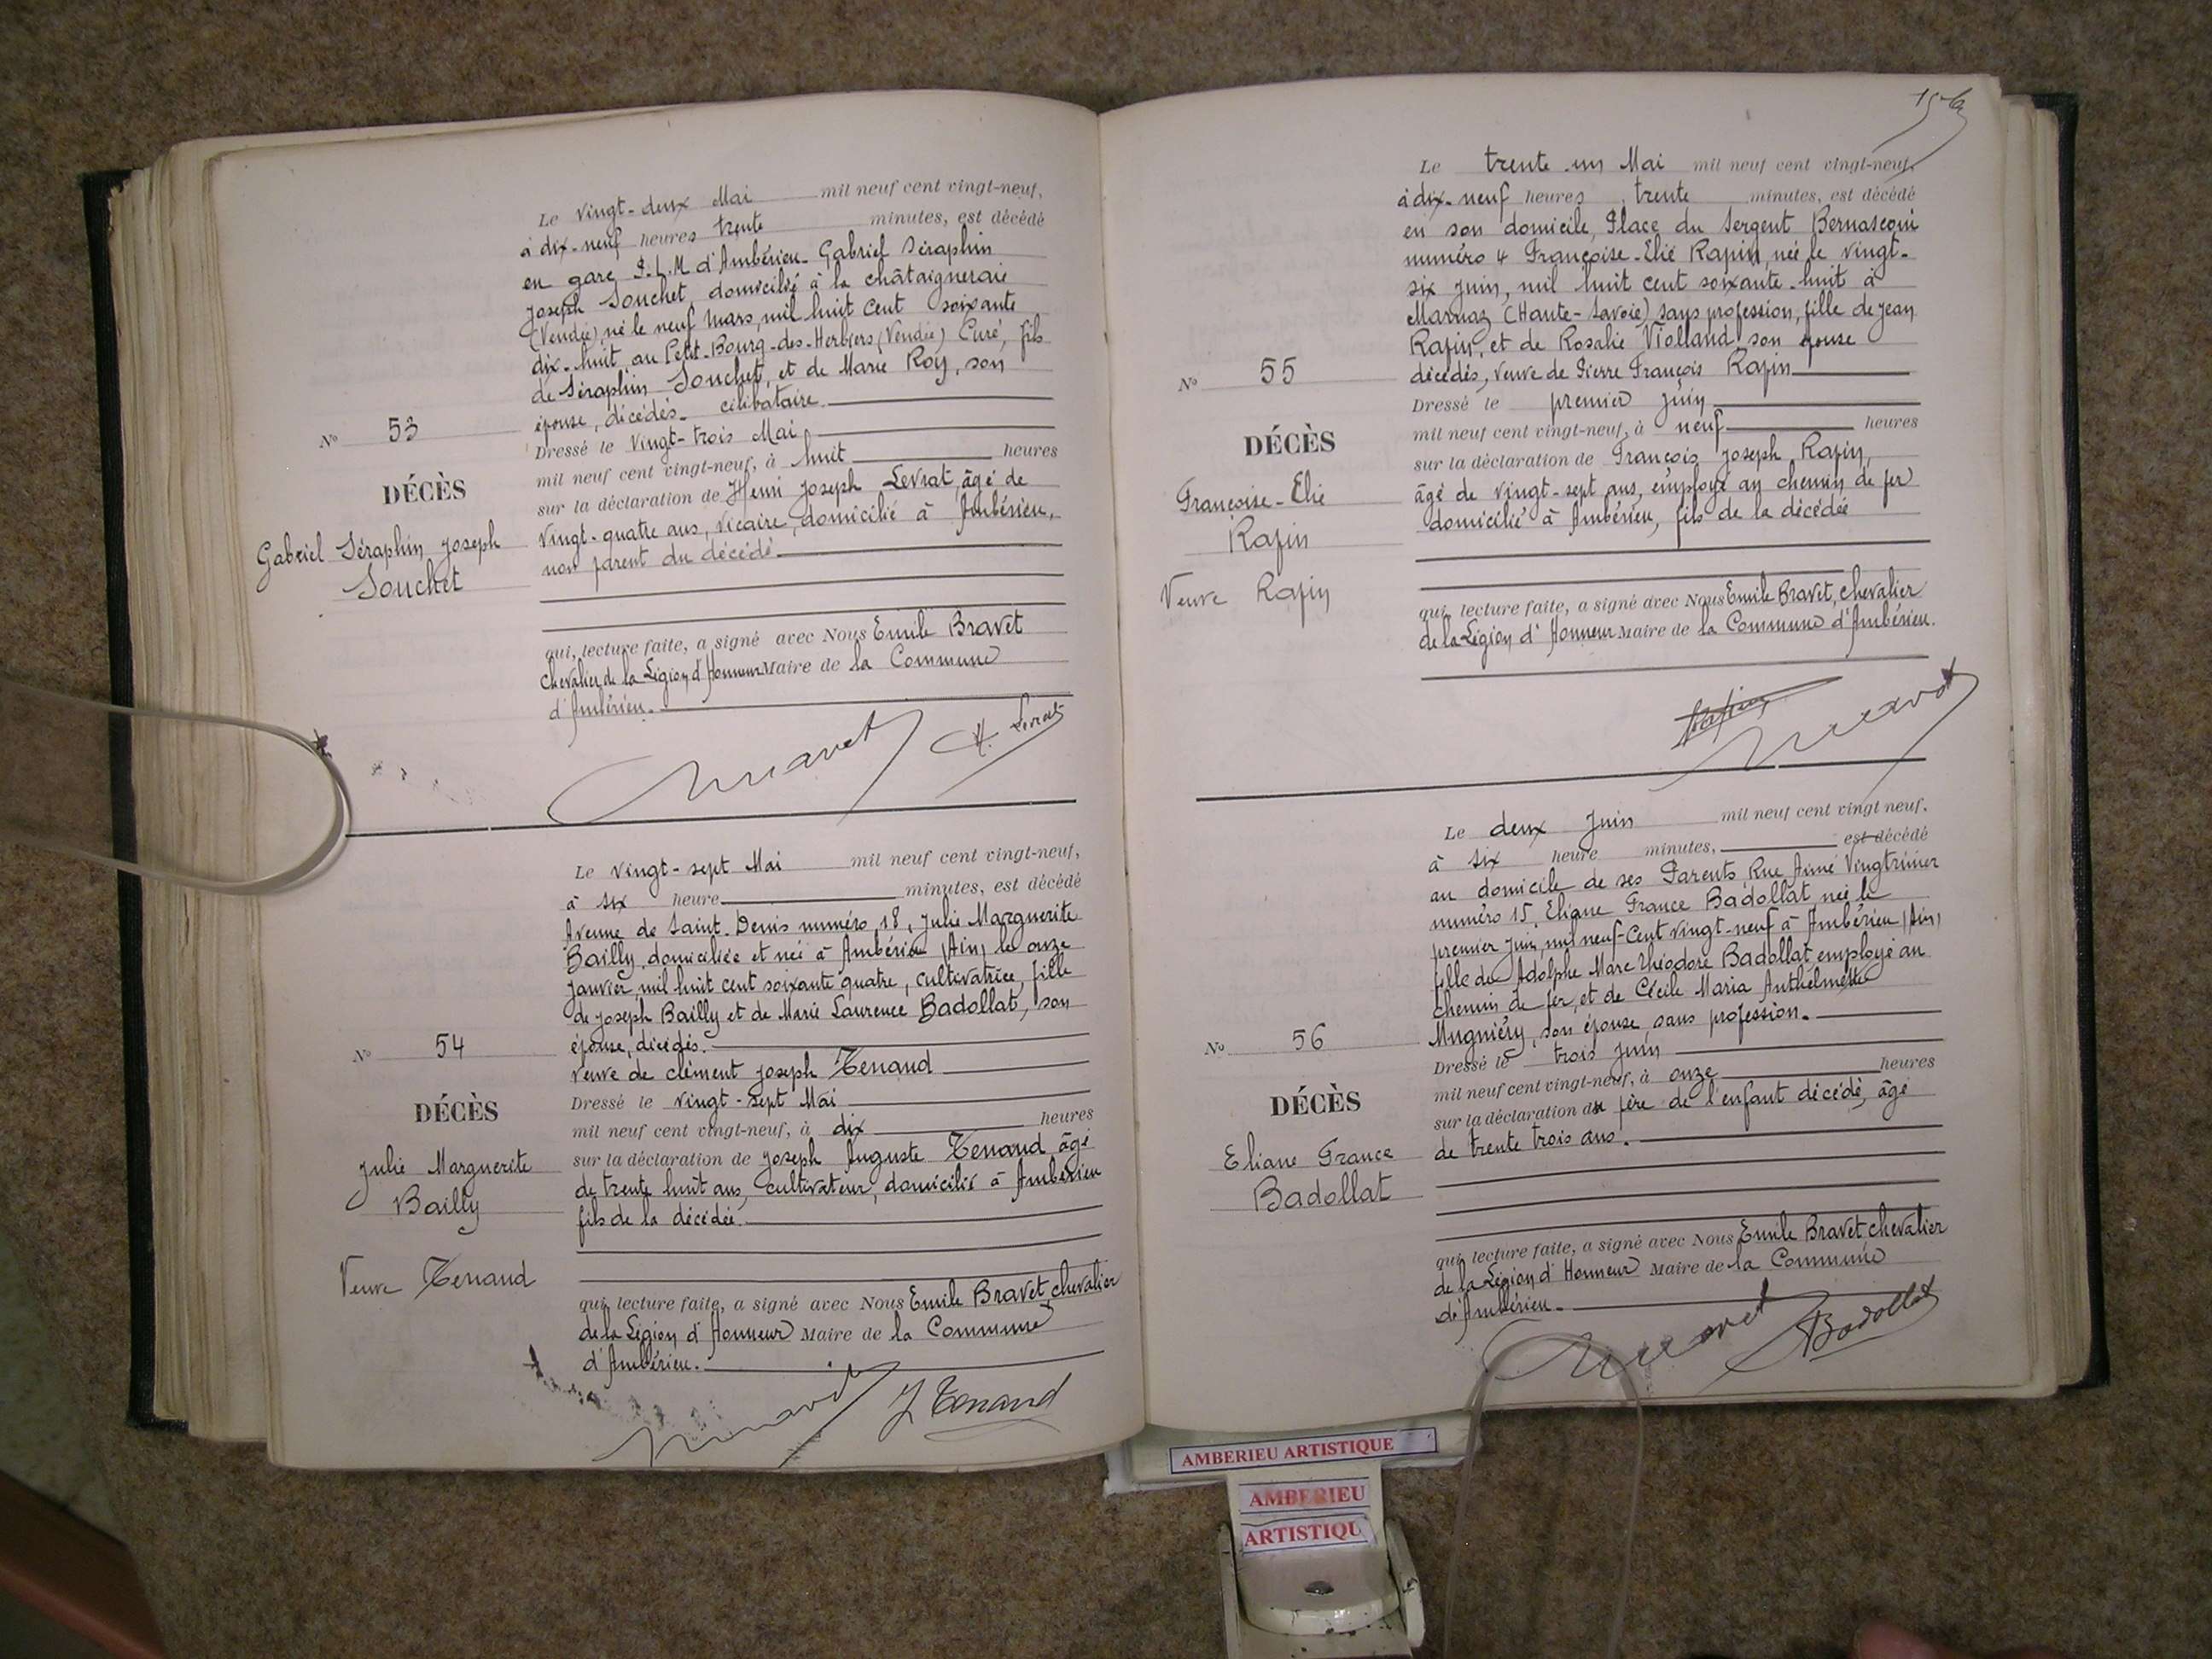 Le vingt-deux Mai mil neuf cent vingt-neuf,
à dix-neuf heures trente minutes, est décédé
en gare P.L.M d'Ambérieu Gabriel Séraphin
Joseph Souchet, domicilié à la châtaigneraie
(Vendée), né le neuf Mars, mil huit cent soixante
dix-huit, au Petit-Bourg-des-Herbiers (Vendée) Curé, fils
de Séraphin Souchet, et de Marie Roy, son
épouse, décédés. célibataire.
N° 53
Dressé le vingt-trois Mai
mil neuf cent vingt-neuf, à huit heures
DÉCÈS
sur la déclaration de Henri Joseph Levrat, âgé de
vingt-quatre ans, vicaire, domicilié à Ambérieu,
non parent du décédé.
Gabriel Séraphin Joseph
Souchet
qui, lecture faite, a signé avec Nous Emile Bravet
chevalier de la Légion d'Honneur Maire de la Commune
d'Ambérieu.
Bravet H. Levrat
Le vingt-sept Mai mil neuf cent vingt-neuf,
à six heure minutes, est décédé
Avenue de Saint-Denis numéro 18, Julie Marguerite
Bailly, domiciliée et née à Ambérieu (Ain) le onze
Janvier, mil huit cent soixante quatre, cultivatrice, fille
de Joseph Bailly et de Marie Laurence Badollat, son
épouse, décédés.
veuve de clément Joseph Tenand
N° 54
Dressé le vingt-sept Mai
mil neuf cent vingt-neuf, à dix heures
DÉCÈS
sur la déclaration de Joseph Auguste Tenand âgé
de trente huit ans, cultivateur, domicilié à Ambérieu
fils de la décédée.
Julie Marguerite
Bailly
Veuve Tenand
qui, lecture faite, a signé avec Nous Emile Bravet, chevalier
de la Légion d'Honneur Maire de la Commune
d'Ambérieu.
Bravet J Tenand
Le trente-un Mai mil neuf cent vingt-neuf,
à dix-neuf heures trente minutes, est décédé
en son domicile, Place du Sergent Bernasconi
numéro 4 Françoise-Elie Rapin, née le vingt-
six juin, mil huit cent soixante-huit à
Marnaz (Haute-Savoie) sans profession, fille de Jean
Rapin, et de Rosalie Violland, son épouse
décédés, veuve de Pierre François Rapin
N° 55
Dressé le premier Juin
mil neuf cent vingt-neuf, à neuf heures
DÉCÈS
sur la déclaration de François Joseph Rapin,
âgé de vingt-sept ans, employé au chemin de fer
domicilié à Ambérieu, fils de la décédée
Françoise-Elie
Rapin
Veuve Rapin
qui, lecture faite, a signé avec Nous Emile Bravet, chevalier
de la Légion d'Honneur Maire de la Commune d'Ambérieu.
Rapin Bravet
Le deux Juin mil neuf cent vingt neuf,
à six heure minutes, est décédé
au domicile de ses Parents Rue Aimé Vingtrinier
numéro 15, Eliane France Badollat, née le
premier Juin, mil neuf-cent vingt-neuf à Ambérieu (Ain)
fille de Adolphe Marc Théodore Badollat employé au
chemin de fer, et de Cécile Maria Anthelmette
Mugniéry, son épouse, sans profession.
N° 56
Dressé le trois Juin
mil neuf cent vingt-neuf, à onze heures
DÉCÈS
sur la déclaration du père de l'enfant décédé, âgé
de trente trois ans.
Eliane France
Badollat
qui, lecture faite, a signé avec Nous Emile Bravet, chevalier
de la Légion d'Honneur Maire de la Commune
d'Ambérieu.
Bravet Badollat
AMBERIEU ARTISTIQUE
AMBERIEU
ARTISTIQU